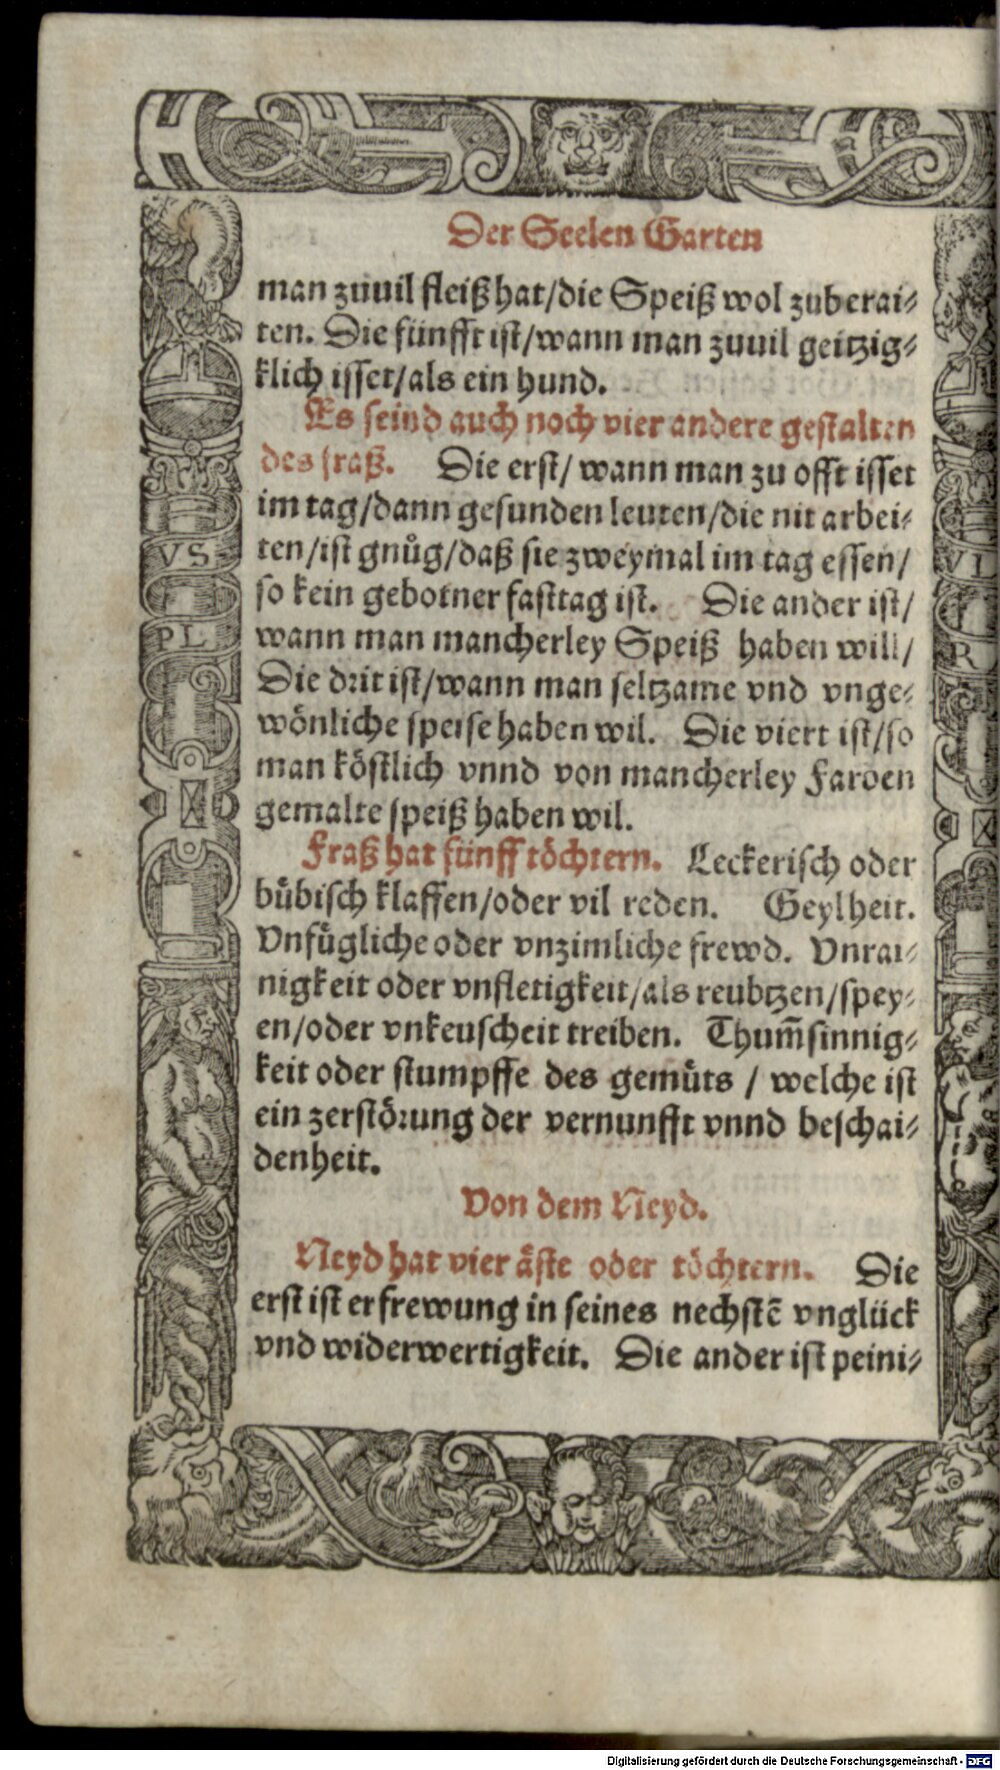 Der Seelen Garten
man zuuil fleiß hat/die Speiß wol zuberai⸗
ten. Die fünfft ist/wann man zuuil geitzig⸗
klich isset/als ein hund.
Es seind auch noch vier andere gestalten
des fraß. Die erst/ wann man zu offt isset
im tag/dann gesunden leuten/die nit arbei⸗
ten/ist gnůg/daß sie zweymal im tag essen/
so kein gebotner fasttag ist. Die ander ist/
wann man mancherley Speiß haben will/
Die drit ist/wann man seltzame vnd vnge⸗
wönliche speise haben wil. Die viert ist/so
man köstlich vnnd von mancherley Farben
gemalte speiß haben wil.
Fraß hat fünff töchtern. Leckerisch oder
bübisch klaffen/oder vil reden. Geylheit.
Vnfůgliche oder vnzimliche frewd. Vnrai⸗
nigkeit oder vnfletigkeit/als reubtzen/spey⸗
en/oder vnkeuscheit treiben. Thum̃sinnig⸗
keit oder stumpffe des gemüts / welche ist
ein zerstörung der vernunfft vnnd beschai⸗
denheit.
Von dem Neyd.
Neyd hat vier äste oder töchtern. Die
erst ist erfrewung in seines nechstẽ vnglück
vnd widerwertigkeit. Die ander ist peini⸗
VS
PL
VI
R
Digitalisierung gefördert durch die Deutsche Forschungsgemeinschaft - DFG